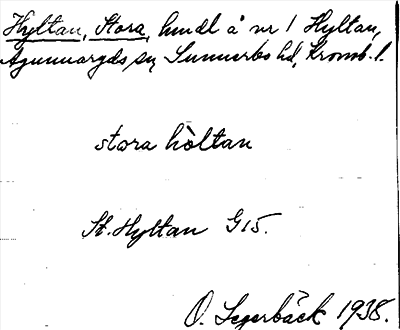 Hyltan, Stora, hmdl å nr 1 Hyltan,
Agunnaryds sn, Sunnerbo hd, Kronob. l.
stora hòltan
St. Hyltan G15.
O. Segerbäck 1938.